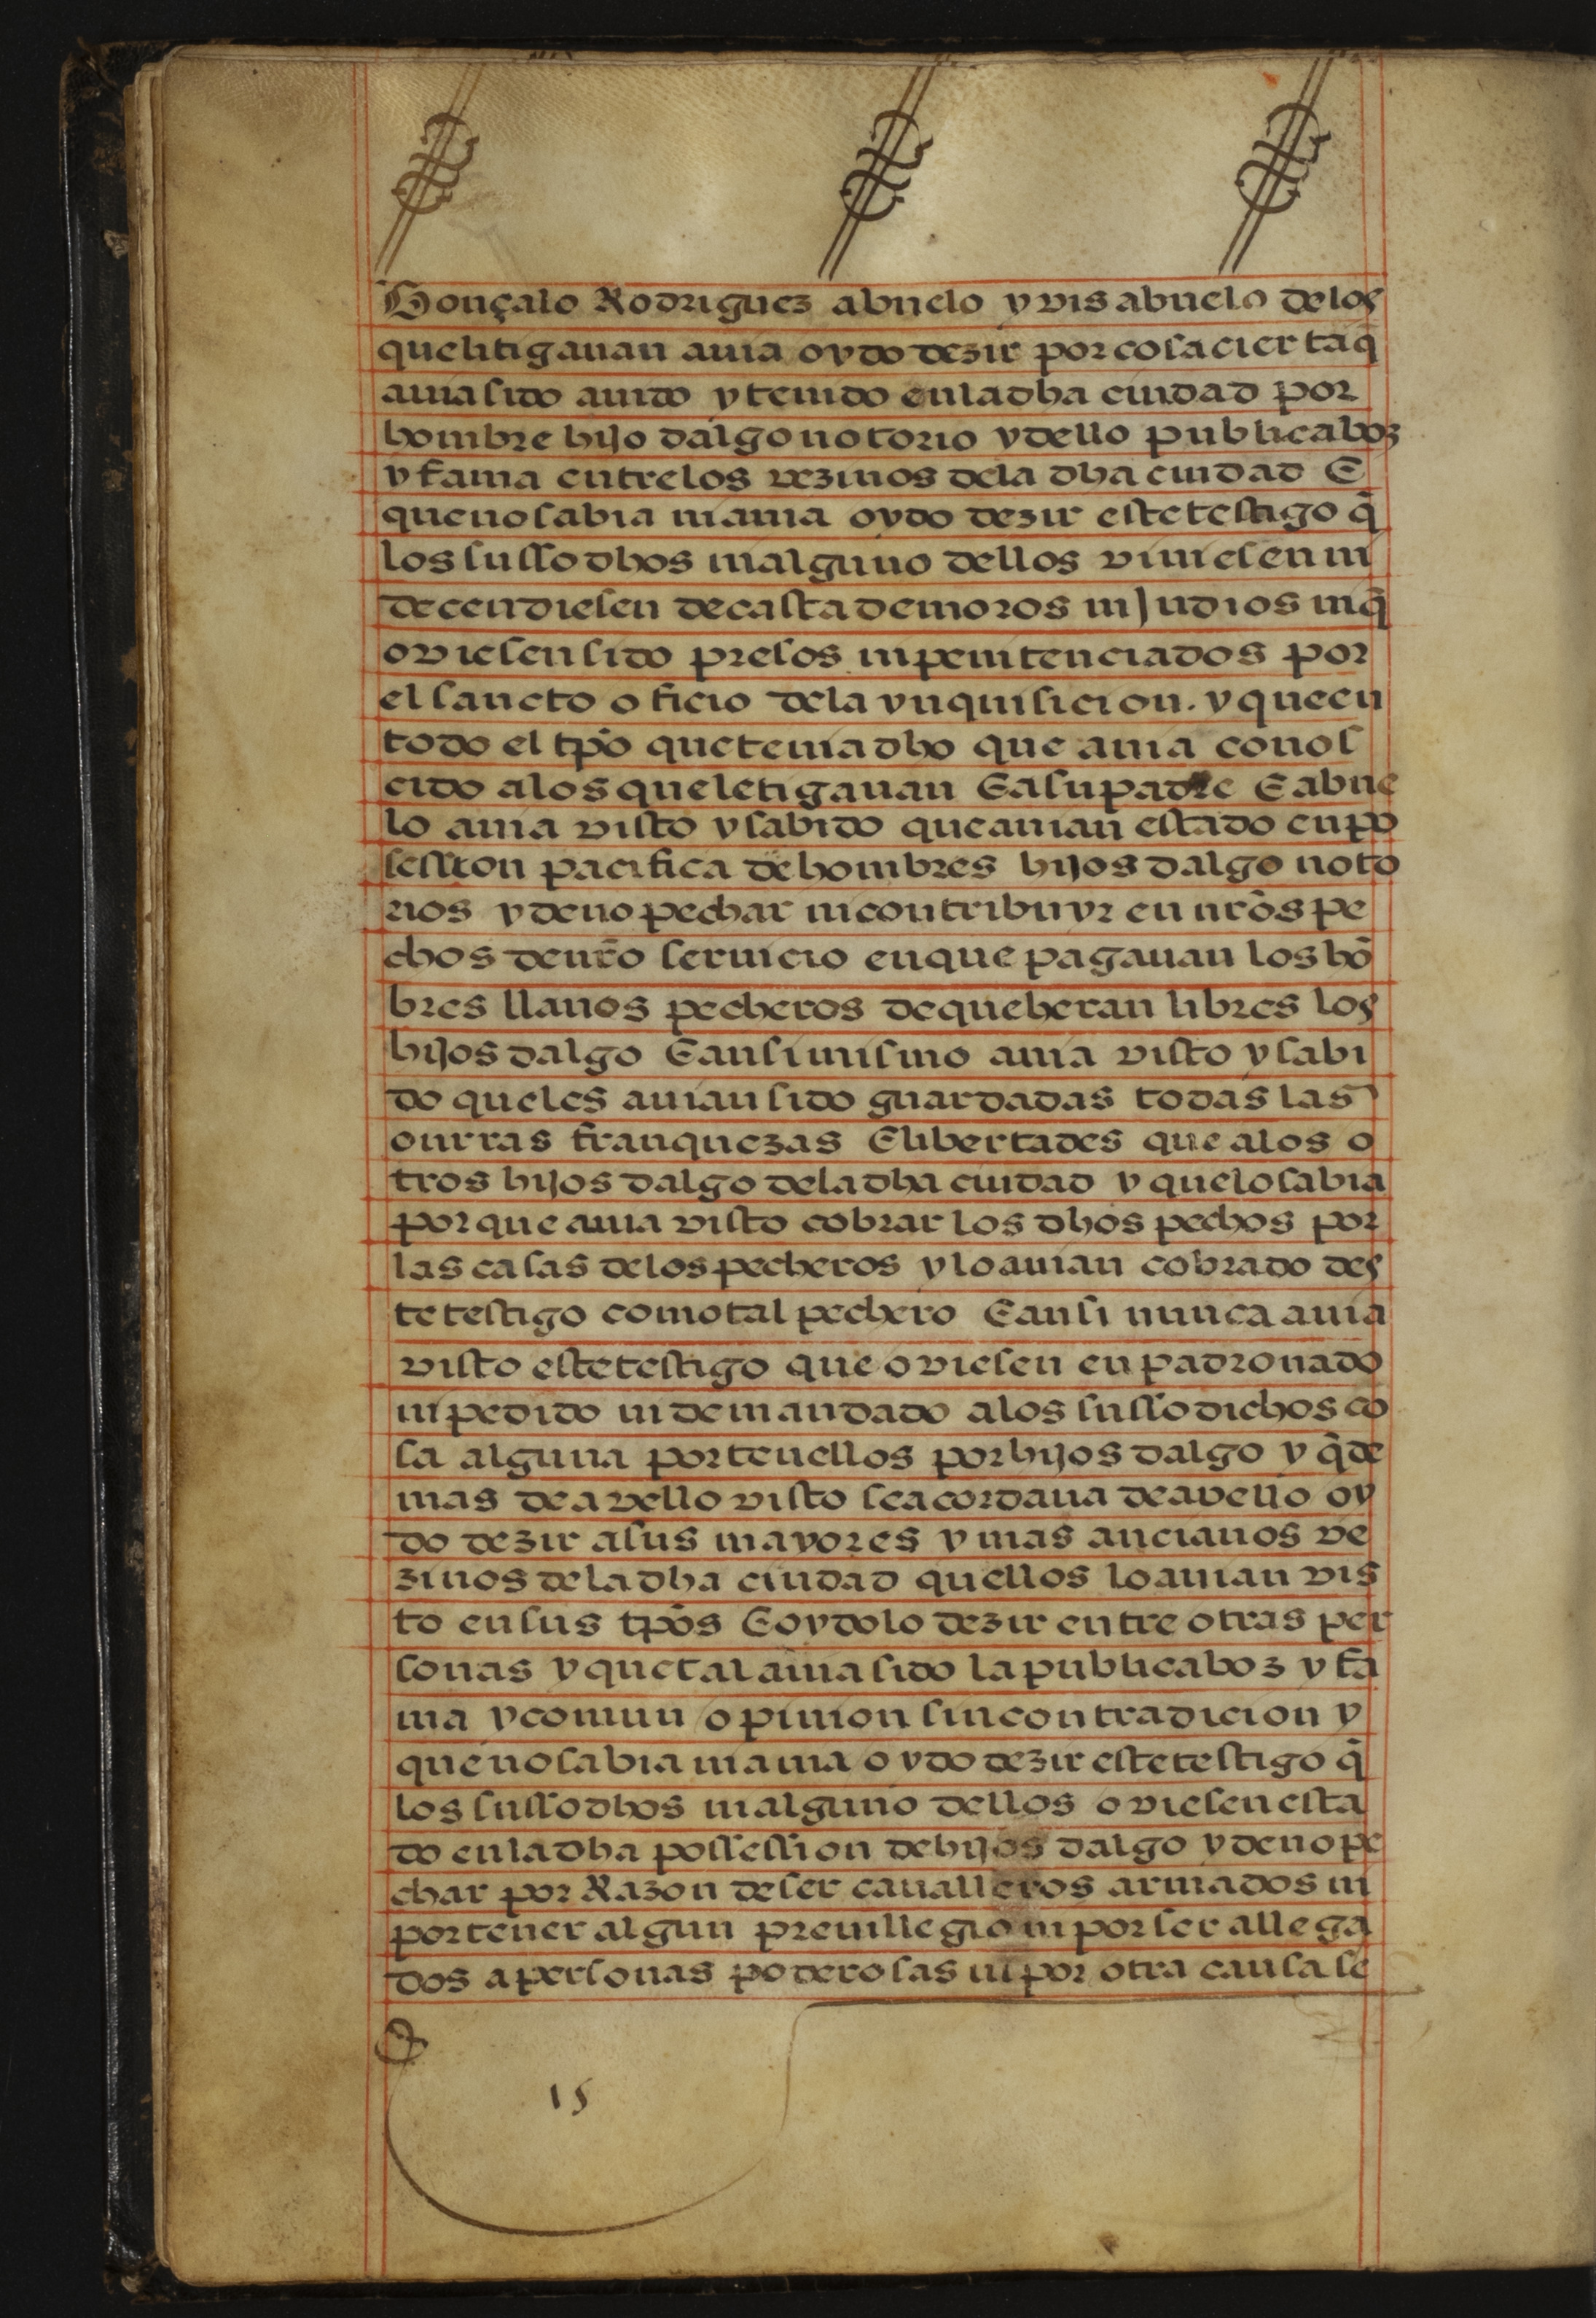 Gonçalo Rodriguez abuelo y visabuelo de los
que litigauan auia oydo dezir por cosa cierta q̃
auia sido auido y tenido en la dha ciudad por
hombre hijo dalgo notorio y dello publica boz
y fama entre los vezinos de la dha ciudad E
que no sabia ni auia oydo dezir este testigo q̃
los sussodhos ni alguno dellos viniesen ni
decendiesen de casta de moros ni judios ni q̃
oviesen sido presos ni penitenciados por
el sancto oficio de la ynquisicion. y que en
todo el tpo que tenia dho que auia conos
cido a los que letigauan E a su padre E abue
lo auia visto y sabido que auian estado en po
session pacifica de hombres hijos dalgo noto
rios y de no pechar ni contribuyr en nr̃os pe
chos de nr̃o seruicio en que pagauan los hõ
bres llanos pecheros de que heran libres los
hijos dalgo E ansimismo auia visto y sabi
do que les auian sido guardadas todas las
onrras franquezas E libertades que a los o
tros hijos dalgo de la dha ciudad y que lo sabia
por que auia visto cobrar los dhos pechos por
las casas de los pecheros y lo auian cobrado des
te testigo como tal pechero E ansi nunca auia
visto este testigo que oviesen enpadronado
ni pedido ni demandado a los sussodichos co
sa alguna por tenellos por hijos dalgo y q̃ de
mas de avello visto se acordaua de avello oy
do dezir a sus mayores y mas ancianos ve
zinos de la dha ciudad quellos lo auian vis
to en sus tpos E oydolo dezir entre otras per
sonas y que tal auia sido la publica boz y fa
ma y comun opinion sin contradicion y
que no sabia ni auia oydo dezir este testigo q̃
los sussodhos ni alguno dellos oviesen esta
do en la dha possession de hijos dalgo y de no pe
char por Razon de ser caualleros armados ni
por tener algun preuillegio ni por ser allega
dos a personas poderosas ni por otra causa se
15